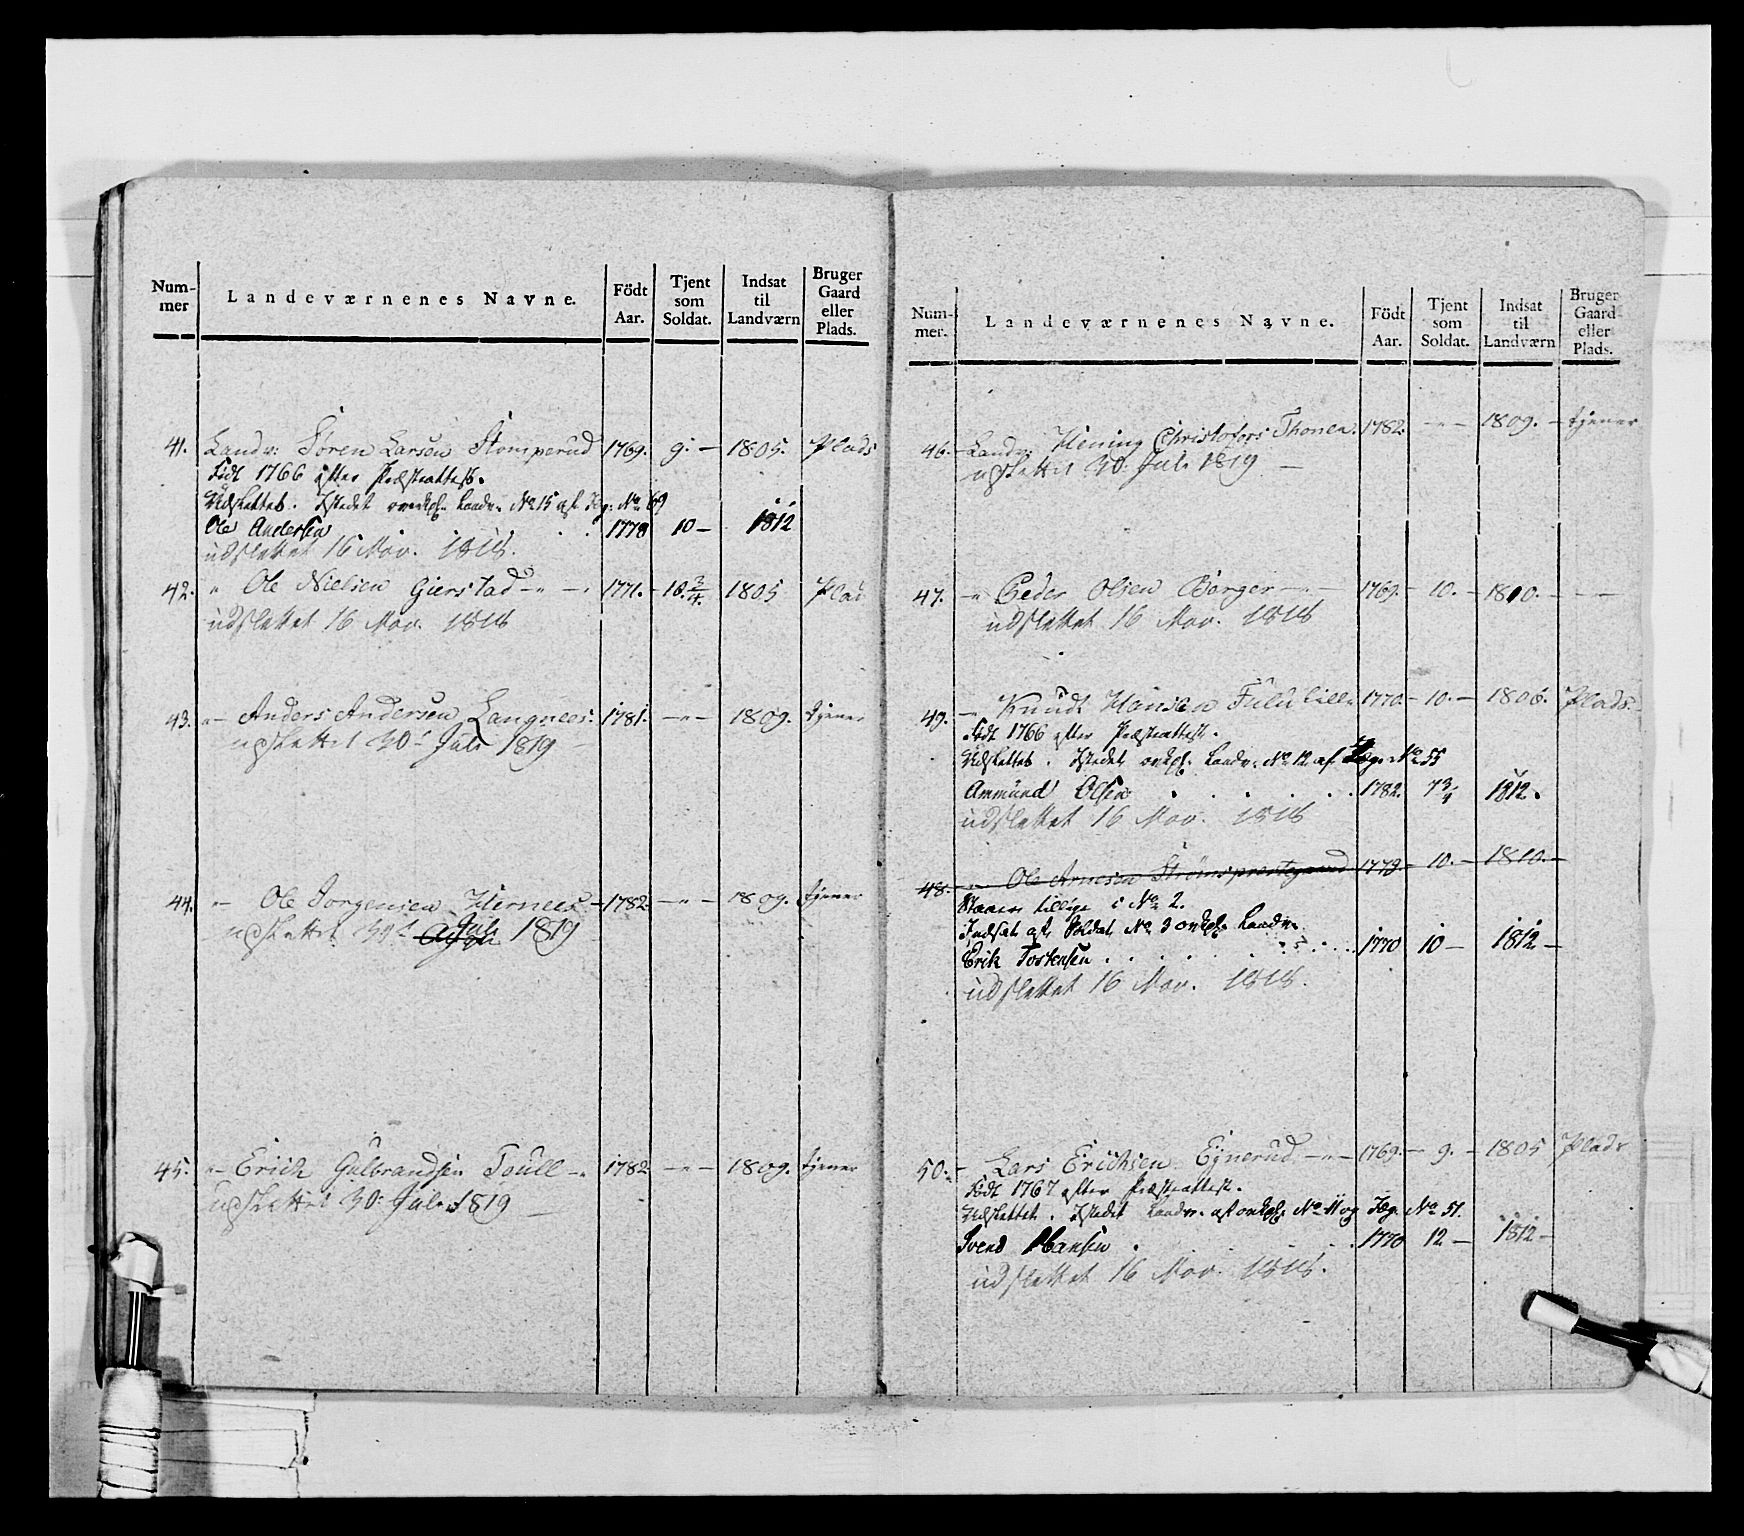 Num-mer Landeværnenes Navne. Födt Aar. Tjent som Soldat. Indsat til Landværn Bruger Gaard eller Plads.
41. Landv: Sören Larsen Stomperud 1769. 9. – 1805. Plads
Födt 1766 efter Præsteattest.
Udslettes. Istedet Landv. No 15 af Læg. No 69
Ole Andersen 1778 10 – 1812
udslettet 16 Nov. 1818.
42. " Ole Nielsen Gierstad –"– 1771. – 10. 3/4. 1805 Plad
udslettet 16 Nov. 1818
43. "– Anders Andersen Langnees. 1781. –"– 1809. tjener
udslettet 30' Juli 1819 –
44. "– Ole Jorgensen Hernees – 1782. –"– 1809. tjener
udslettet 30' Juli 1819
45. "– Erich Gulbrandsen Toull –" 1782. –"– 1809. tjener
udslettet 30: Juli 1819 –
Num-mer. Landeværnenes Navne. Födt Aar. Tjent som Soldat. Indsat til Landværn Bruger Gaard eller Plads.
46. Landv: Hening Christofers Thonen. 1782. –"– 1809. – tjener
udslettet 30: Juli 1819 –
47. –" Peder Olsen Berger –"– 1769. – 10. – 1810. – – –
udslettet 16 Nov. 1818
49. –" Knudt Hansen Fulu lille 1770 – 10. – 1806. Plads.
Födt 1766 efter Præsteattest.
Udslettes. Istedet Landv. No 12 af Læg. No 55
Ammund Olsen . . . . . . 1782. 7 3/4 1812.
udslettet 16 Nov. 1818
48. –" Ole Arnesen Strömsprestegaard 1779. – 10. – 1810. –
Staaer tillige i No 2.
Indsat af Soldat No 3 Landv.
Erik Tostensen . . . . . . 1770 10 – 1812 –
udslettet 16 Nov. 1818.
50. – Lars Erichsen Ejnerud –"– 1769. – 9. – 1805 Plads
Födt 1767 efter Præsteattest.
Udslettet. Istedet Landv. No 11 og Læg. No 51.
Svend Hansen . . . 1770 12 – 1812 –
udslettet 16 Nov. 1818.